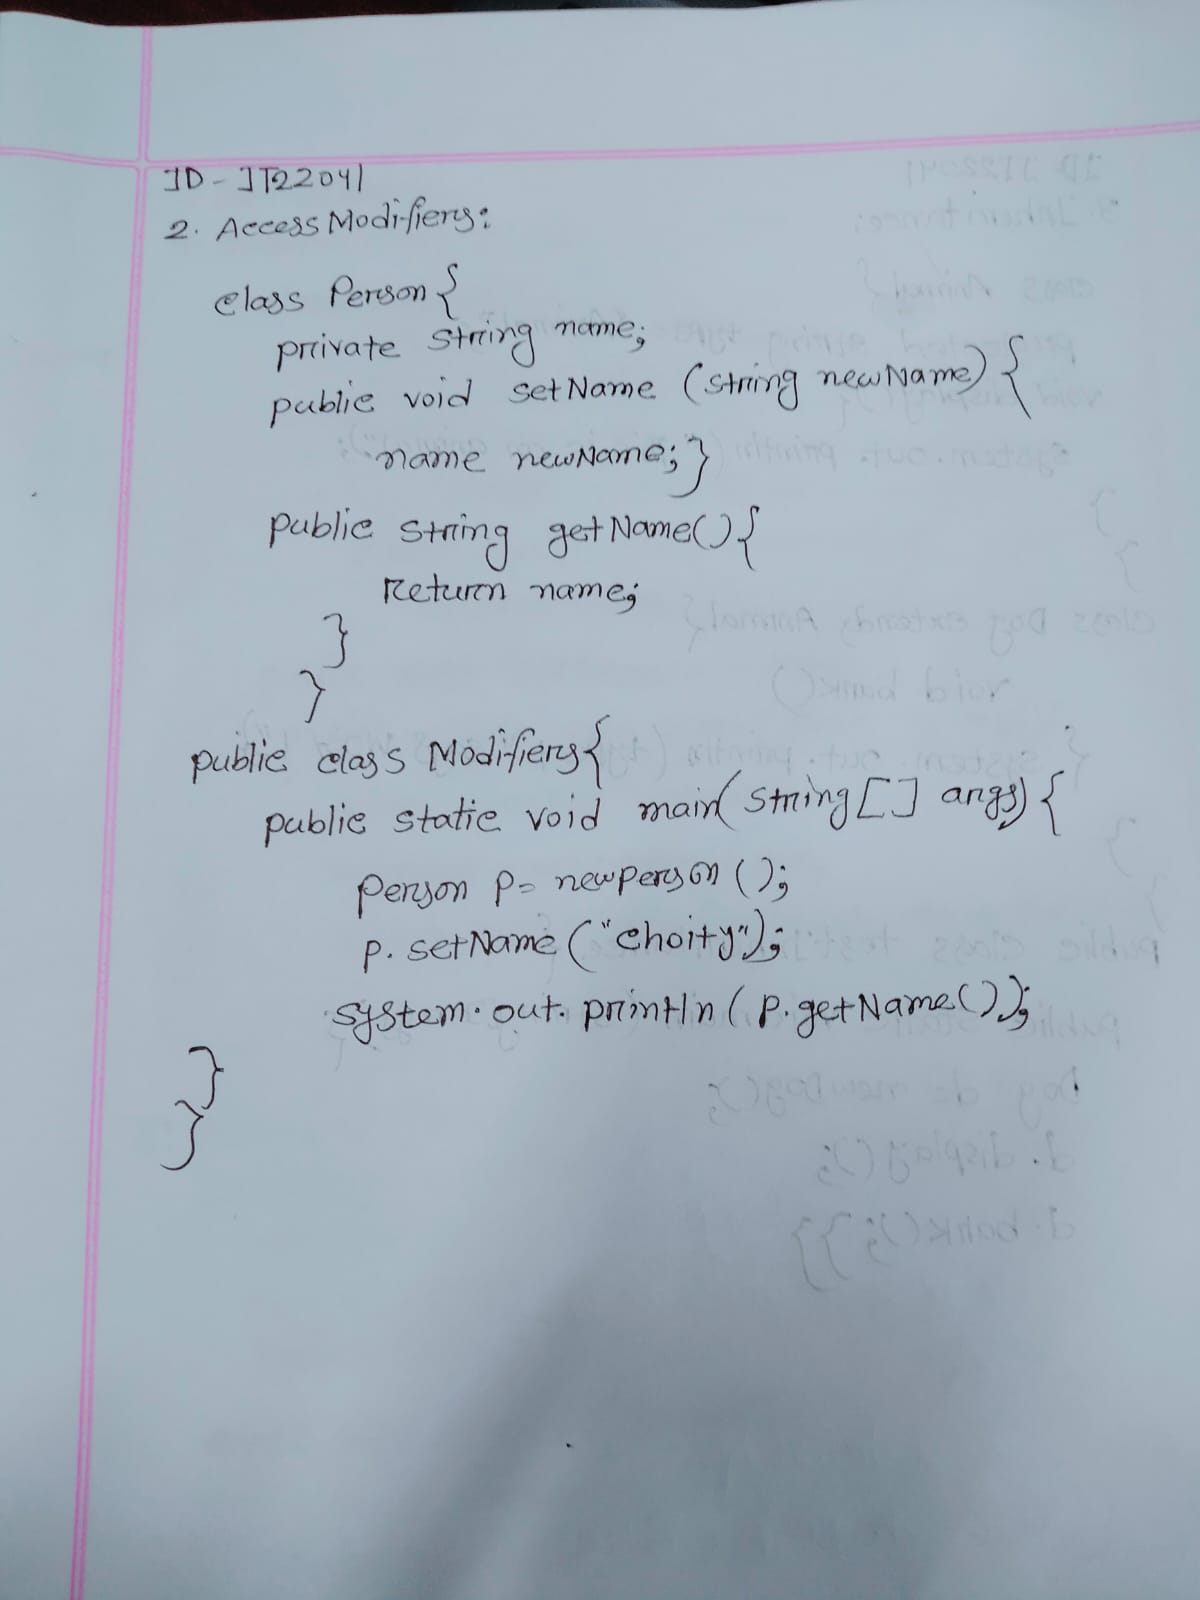 ID-IT22041
2. Access Modifiers:
class Person{
private string name;
public void setName (string newName){
name newName;}
public string getName(){
Return name;
}
}
public class Modifiers{
public static void main(string[] args){
person p= newperson();
p. setName ("choity");
system. out. println( p. getName());
}
}